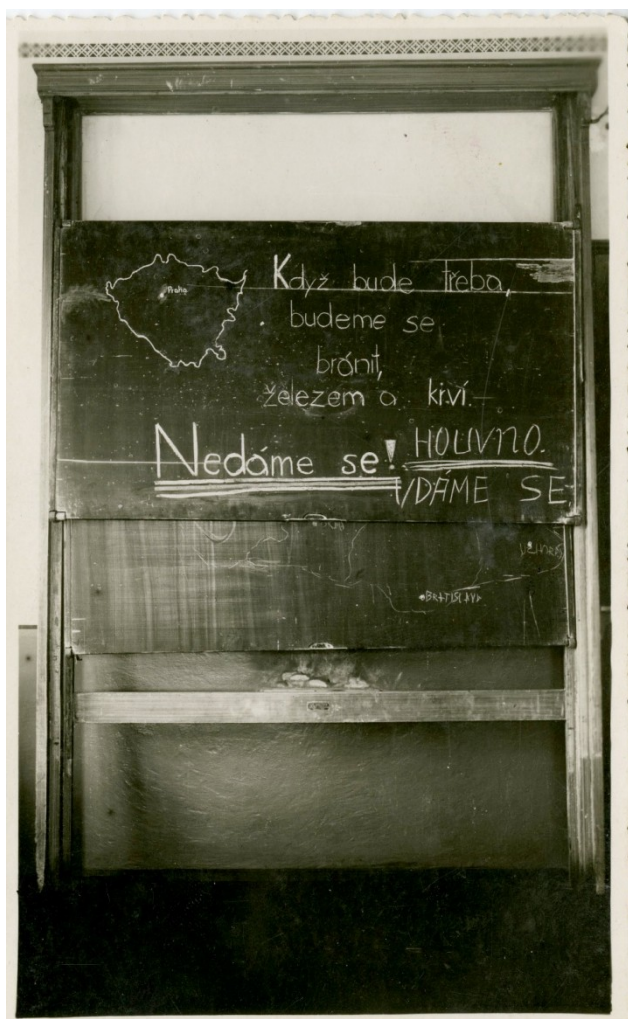 Praha
Když bude třeba,
budeme se
bránit,
železem a krví.
Nedáme se! HOUVNO.
VDÁME SE
BRATISLAVA